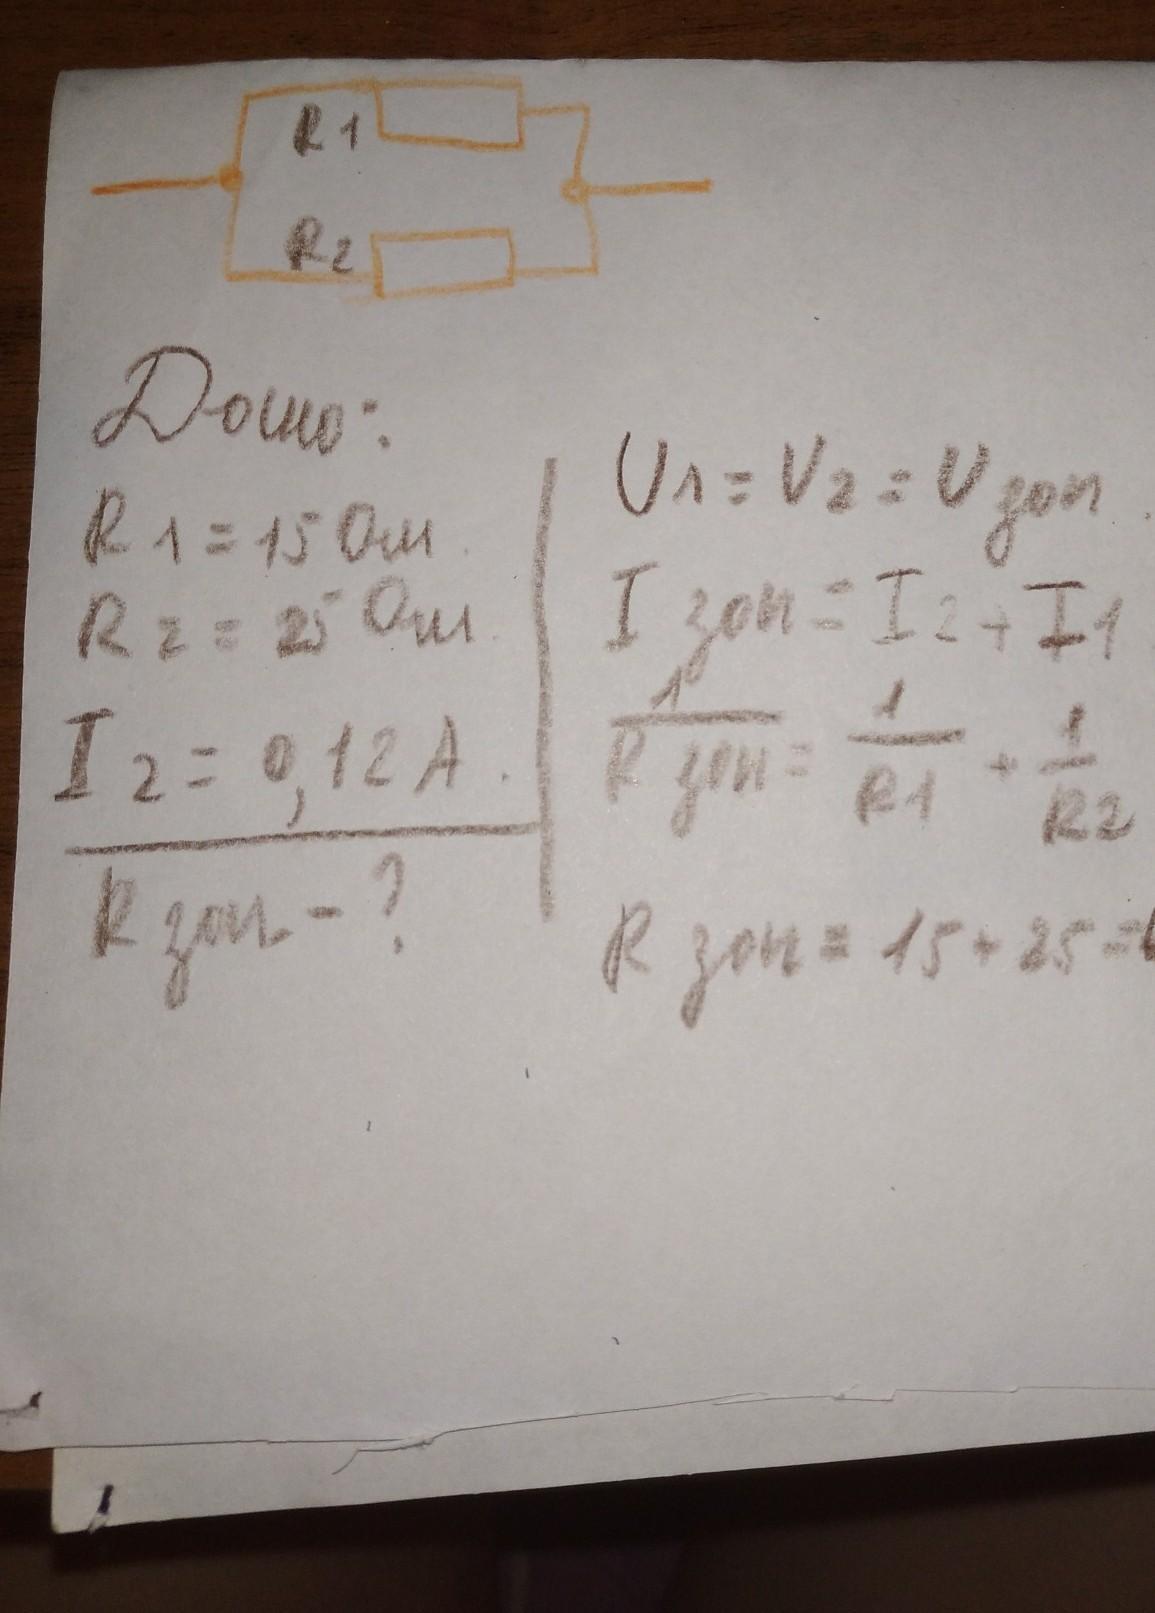 R1
R2
Дано:
R1 = 15 Ом.
R2 = 25 Ом.
I2 = 0,12 А.
Rзаг - ?
U1 = U2 = Uзаг.
I заг = I2 + I1
1/R заг = 1/R1 + 1/R2
R заг = 15 + 25 =